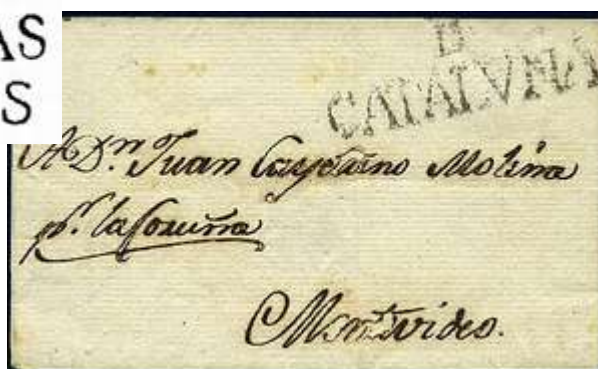 AS
S
D
CATALVÑA
A Dn. Juan Cayetano Molina
pr. la Coruña
Montevideo.